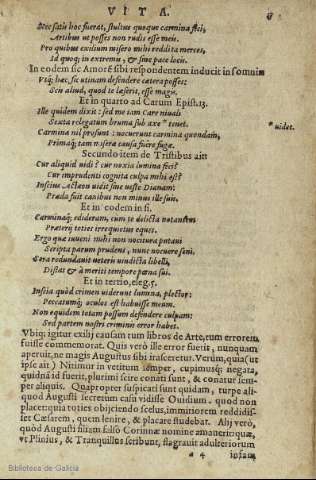 VITA.
Nec satis hoc fuerat, stultus quoque carmina feci,
Artibus ut posses non rudis esse meis.
Pro quibus exilium misero mihi reddita merces,
Id quoque in extremis, & sine pace locis.
In eodem sic Amorē sibi respondentem inducit in somnis
Vtque hæc, sic utinam defendere cætera posses:
Scis aliud, quod te læserit, esse magis.
Et in quarto ad Carum Epist. 13.
Ille quidem dixit: sed me iam Care niuali
Sexta relegatum bruma sub axe * uenet. * uidet.
Carmina nil prosunt: nocuerunt carmina quondam,
Primaque tam miseræ causa fuere fugæ.
Secundo item de Tristibus ait:
Cur aliquid uidi? cur noxia lumina feci?
Cur imprudenti cognita culpa mihi est?
Inscius Actæon uidit sine ueste Dianam:
Præda fuit canibus non minus ille suis.
Et in eodem
Carminaque edideram, cum te delicta notantem
Præterij toties irrequietus eques.
Ergo quæ iuueni mihi non nocitura putaui
Scripta parum prudens, nunc nocuere seni.
Sera redundauit ueteris uindicta libelli,
Distat & à meriti tempore pœna sui.
Et in tertio, eleg. 5.
Inscia quòd crimen uiderunt lumina, plector:
Peccatumque oculos est habuisse meum.
Non equidem totam possum defendere culpam:
Sed partem nostri criminis error habet.
Vbique igitur exilij causam tum libros de Arte, tum errorem
fuisse commemorat. Quis verò ille error fuerit, nunquam
aperuit, ne magis Augustus sibi irasceretur. Verùm, quia (ut
ipse ait) Nimitur in vetitum semper, cupimusque negata,
quidnā id fuerit, plurimi scire conati sunt, & conātur semper
aliquis. Quapropter suspicati sunt quidam, turpe aliquod
Augusti secretum casu vidisse Ouidium, quod non
placentiquia toties obijciendo scelus, immitiorem reddidisset
Cæsarem, quem lenire, & placare studebat. Alij verò,
quòd Augusti filiam falsò Corinnæ nomine amauerit: quæ,
vt Plinius, & Tranquillus scribunt, flagrauit adulteriorum
a 4 infamia
Biblioteca de Galicia